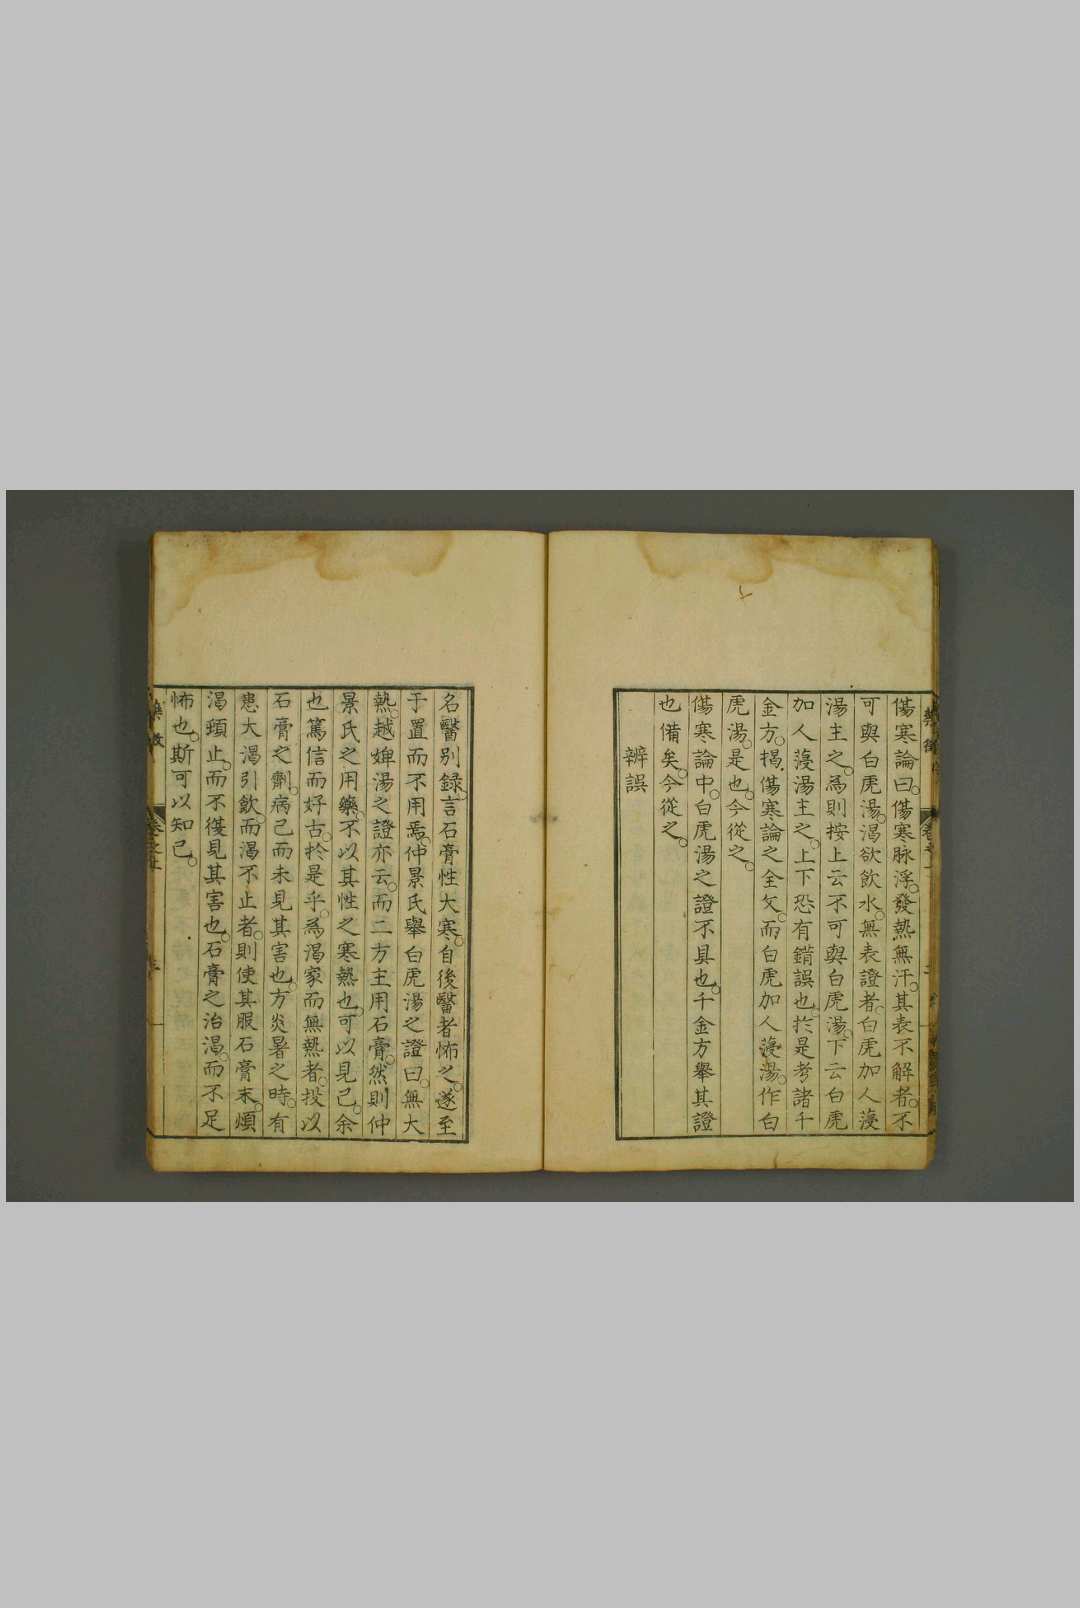 傷寒論曰傷寒脉浮發熱無汗其表不解者不
可與白虎湯渴欲飲水無表證者白虎加人蓡
湯主之爲則按上云不可與白虎湯下云白虎
加人蓡湯主之上下恐有錯誤也於是考諸千
金方揭傷寒論之全文而白虎加人蓡湯作白
虎湯是也今從之
傷寒論中白虎湯之證不具也千金方舉其證
也備矣今從之
辨誤
名醫別錄言石膏性大寒自後醫者怖之遂至
于置而不用焉仲景氏舉白虎湯之證曰無大
熱越婢湯之證亦云而二方主用石膏然則仲
景氏之用藥不以其性之寒熱也可以見已余
也篤信而好古於是乎爲渴家而無熱者投以
石膏之劑病已而未見其害也方炎暑之時有
患大渴引飲而渴不止者則使其服石膏末煩
渴頓止而不復見其害也石膏之治渴而不足
怖也斯可以知已